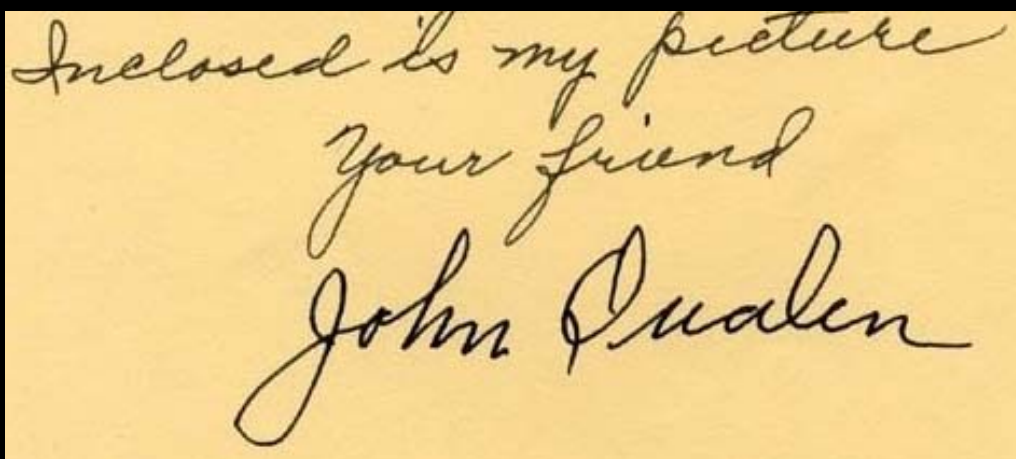 Inclosed is my picture
Your friend
John Qualen